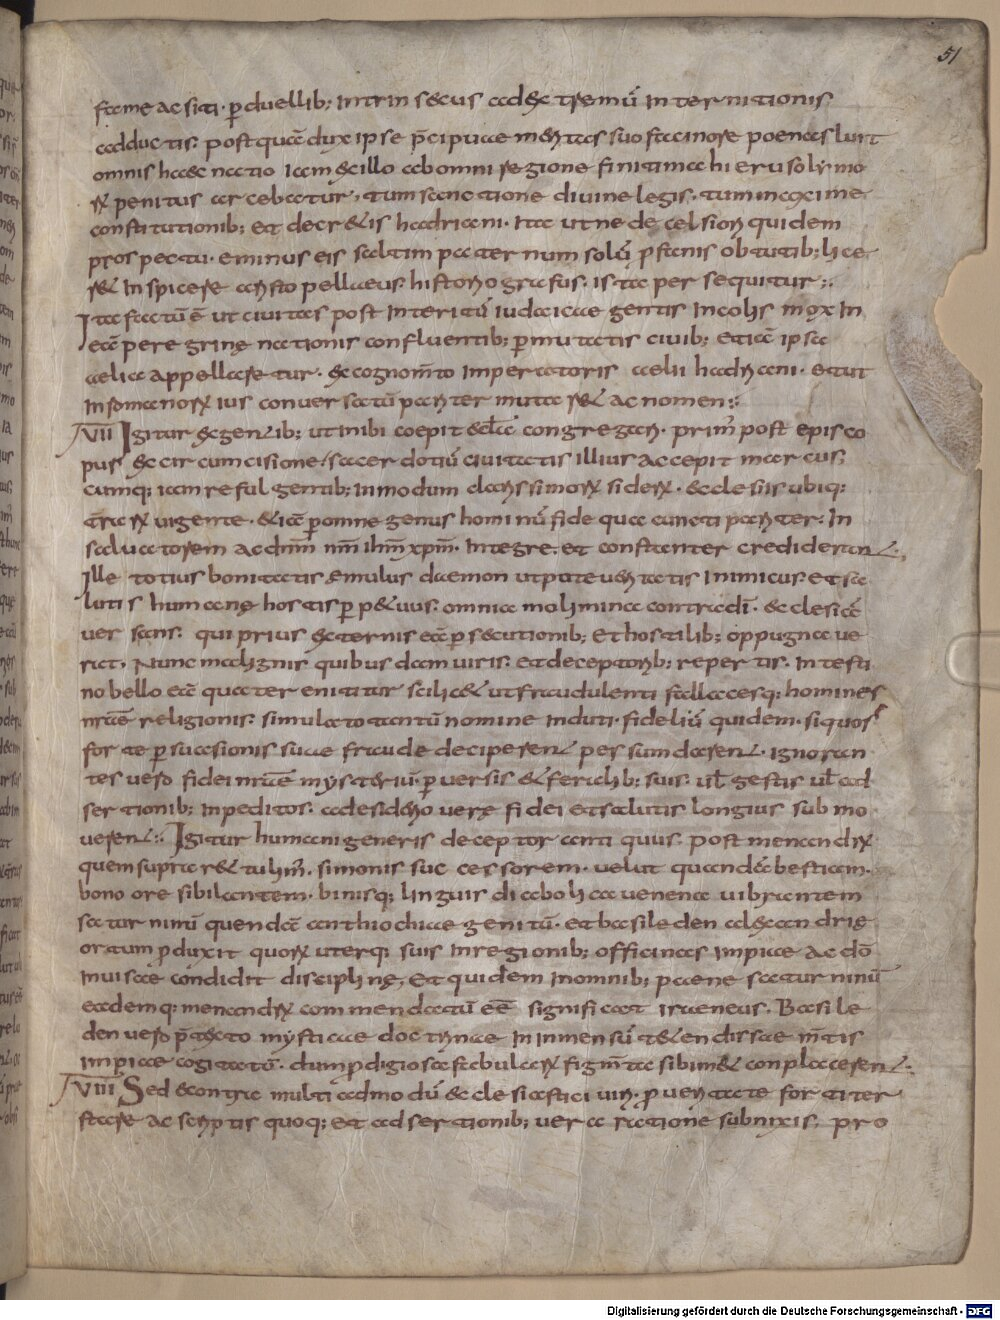 51
fame ac siti · p̄duellib; intrinsecus ad extremū internitionis
adductis · postquā dux ipse p̄cipuae mentas suo facinore poenas luit
omnis haec natio iam & illo ab omni regione finitima hierusolymo
rꝝ penitus arcebatur, tum sanctione divine legis · tum maxime
constitutionib; et decr&is hadriani · Ita ut ne de celsiori quidem
prospectu · eminus eis saltim paternum solū p̄fanis obtutib; lice
r& inspicere aristo pellaeus historiografus · ista persequitur :·
Ita factū ē ut civitas post interitū iudaicae gentis incolis mox in
eā peregrinę nationis confluentib; p̄mutatis civib; etiā ipsa
aelia appellaretur · & cognom̄to imperatoris aelii hadriani · et ut
in somanorꝝ ius conversatū pariter mutar& ac nomen :·
VII Igitur & gentib; ut inibi coepit eccl̄a congregari · prim̄ post episco
pus & circumcisione sacerdotiū civitatis illius accepit marcus;
Cumq; iam refulgentib; in modum clarissimorꝝ siderꝝ · ecclesiis ubiq;
t̄rarꝝ vigente · & iā p̄ omne genus hominū fide qua cuncti pariter · In
salvatorem ac dn̄m nm̄ ihm̄ xpm̄ · integre · et constanter crediderant,
Ille totius bonitatis emulus daemon utpute veritatis inimicus · et sa
lutis humanę hostis p̄p&uus · omnia molimina contradi · ecclesiā
versans · qui prius externis eā p̄secutionib; et hostilib; oppugnave
rat · Nunc malignis quibusdam viris · et deceptorib; repertis · Intesti
no bello eā quater enititur scilic& ut fraudulenti fallacesq; homines
nr̄ae religionis · simulato tantū nomine induti · fideliū quidem · si quos
forte p̄suasionis suae fraude deciperent persumdarent · ignoran
tes vero fidei nr̄ae mysteriū p̄versis & feralib; suis · ul̄ gestis ul̄ ad
sertionib; inpeditos · adesiderio verę fidei et salutis longius submo
verent :· Igitur humani generis deceptor antiquus · Post menandrꝝ
quem supra r&tulim̄ · simonis successorem · velut quandā bestiam ·
bono ore sibilantem · binisq; linguis diabolica venena vibrantem
saturninū quendā anthiochiae genitū · et basileden alexandrie
oratum p̄duxit quorꝝ uterq; suis in regionib; officinas impiae ac dō
invisae condidit disciplinę, Et quidem in omnib; paene saturninū
eademq; menandrꝝ commendatū eē significat iraeneus · Basile
den vero p̄texto mysticae doctrinae in inmensū t&endissae m̄tis
impiae cogitatū · dum p̄digiosa fabularꝝ figm̄ta sibim& conplacerent ·
VIII Sed econtra multi admodū ecclesiastici viri · p̄ veritate fortiter
stare ac scriptis quoq; et adsertionib; vera ratione subnixis · pro
Digitalisierung gefördert durch die Deutsche Forschungsgemeinschaft - DFG